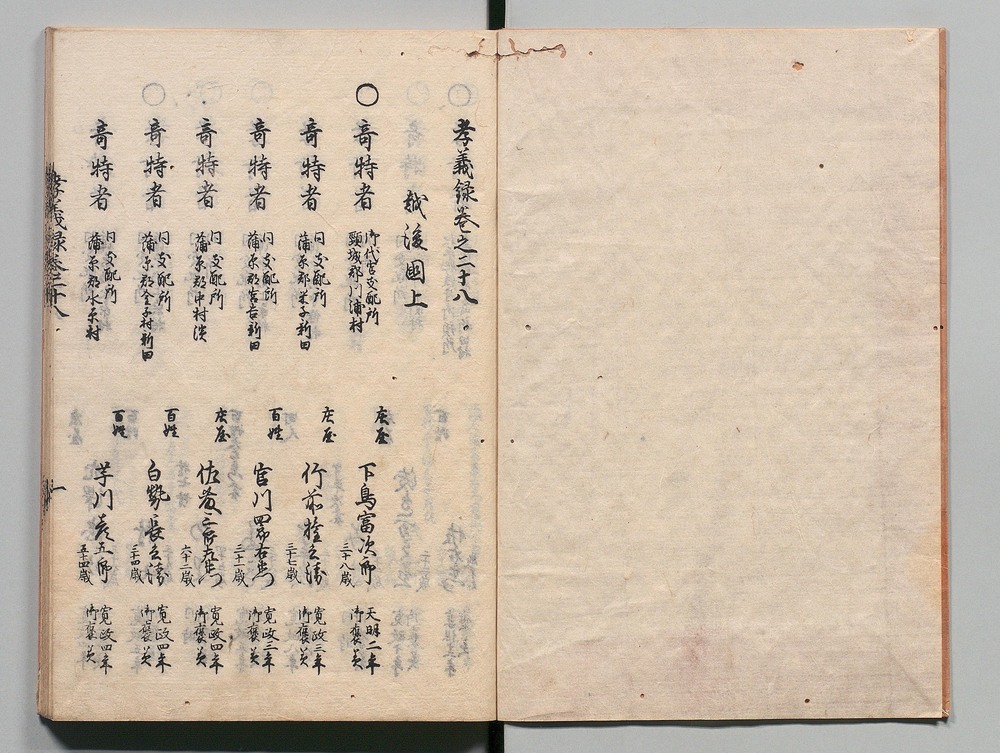 孝義録巻之二十八
越後國上
〇奇特者 御代官支配所 頸城郡川浦村 庄屋 下鳥富次郎 三十八歳 天明二年 御褒美
奇特者 同支配所 蒲原郡米子新田 庄屋 竹前権兵衛 三十七歳 寛政三年 御褒美
奇特者 同支配所 蒲原郡宮古新田 百姓 官川四郎右衛門 三十一歳 寛政三年 御褒美
奇特者 同支配所 蒲原郡中村濱 庄屋 佐藤三郎左衛門 六十二歳 寛政四年 御褒美
〇奇特者 同支配所 蒲原郡金子村新田 百姓 白勢長兵衛 三十四歳 寛政四年 御褒美
奇特者 同支配所 蒲原郡水原村 百姓 芋川彦五郎 五十四歳 寛政四年 御褒美
孝義録巻二十八
一